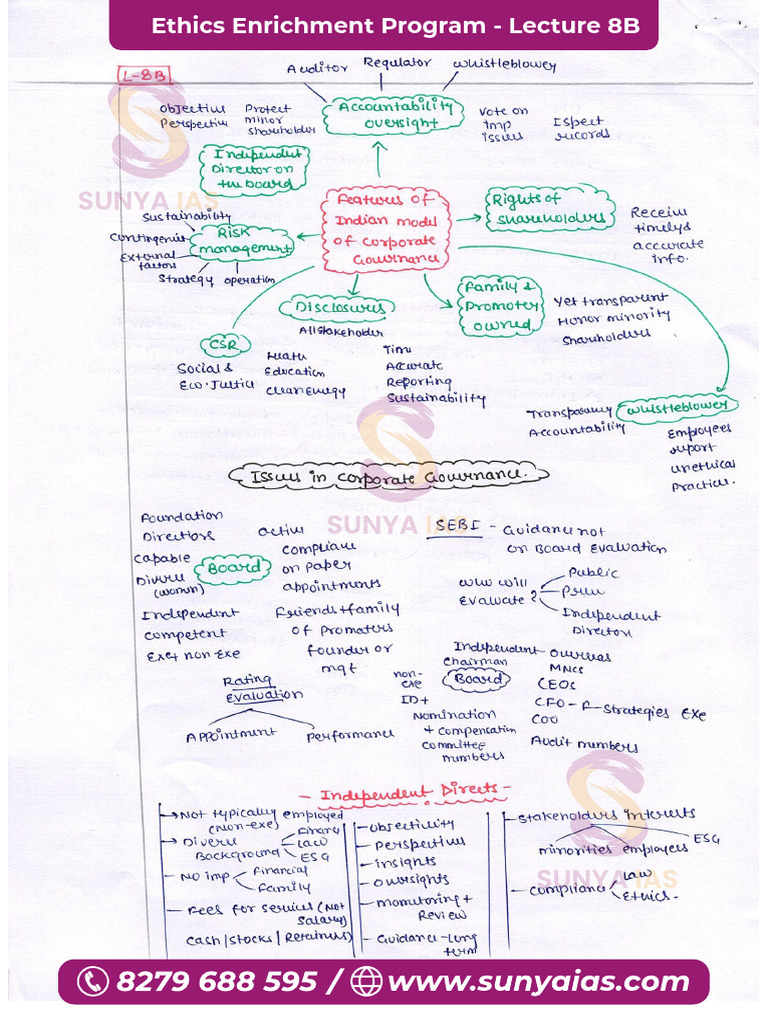 Ethics Enrichment Program - Lecture 8B
L-8B
Auditor
Regulator
Whistleblower
Accountability
oversight
Objective
Perspective
Protect
minor
shareholder
Vote on
imp
issues
Ispect
records
Independent
Director on
the board
SUNYA IAS
Features of
Indian model
of corporate
Governance
Rights of
shareholders
Receive
timelys
accurate
info.
Sustainability
External
factors
Strategy
operation
Risk
management
Disclosures
Allstakeholder
Family &
Promoter
owned
Yet transparent
Honor minority
shareholders
CSR
Social &
Eco. Justice
Health
Education
Clean Energy
Time
Accurate
Reporting
Sustainability
Transparency
Accountability
Whistleblower
Employees
report
unethical
Practices.
Issues in corporate Governance.
SUNYA IAS
Foundation
Directors
Capable
Diverse
(women)
Board
Active
Compliance
on paper
appointments
Independent
competent
Exe + non Exe
Friends + family
of Promoters
founder or
mgt
SEBI - Guidance not
on Board Evaluation
Who will
Evaluate?
Public
Independent
Director
Rating
Evaluation
Appointment
Performance
Independent
Chairman
non-
exe
ID+
Board
Nomination
+ compensation
committee
members
Overseas
MNCs
CEOs
CFO - R - Strategies Exe
COO
Audit members
- Independent Directs -
Not typically employed
(Non-exe)
Diverse
Background
Finance
Law
ESG
No imp
Financial
Family
Fees for services (Not
Salary)
Cash / Stocks / Retainers)
Objectivity
Perspectives
insights
Oversights
Monitoring +
Review
Guidance - long
term
Stakeholders interests
minorities employees
ESG
SUNYA IAS
Compliance
Law
Ethics.
8279 688 595 / www.sunyaias.com